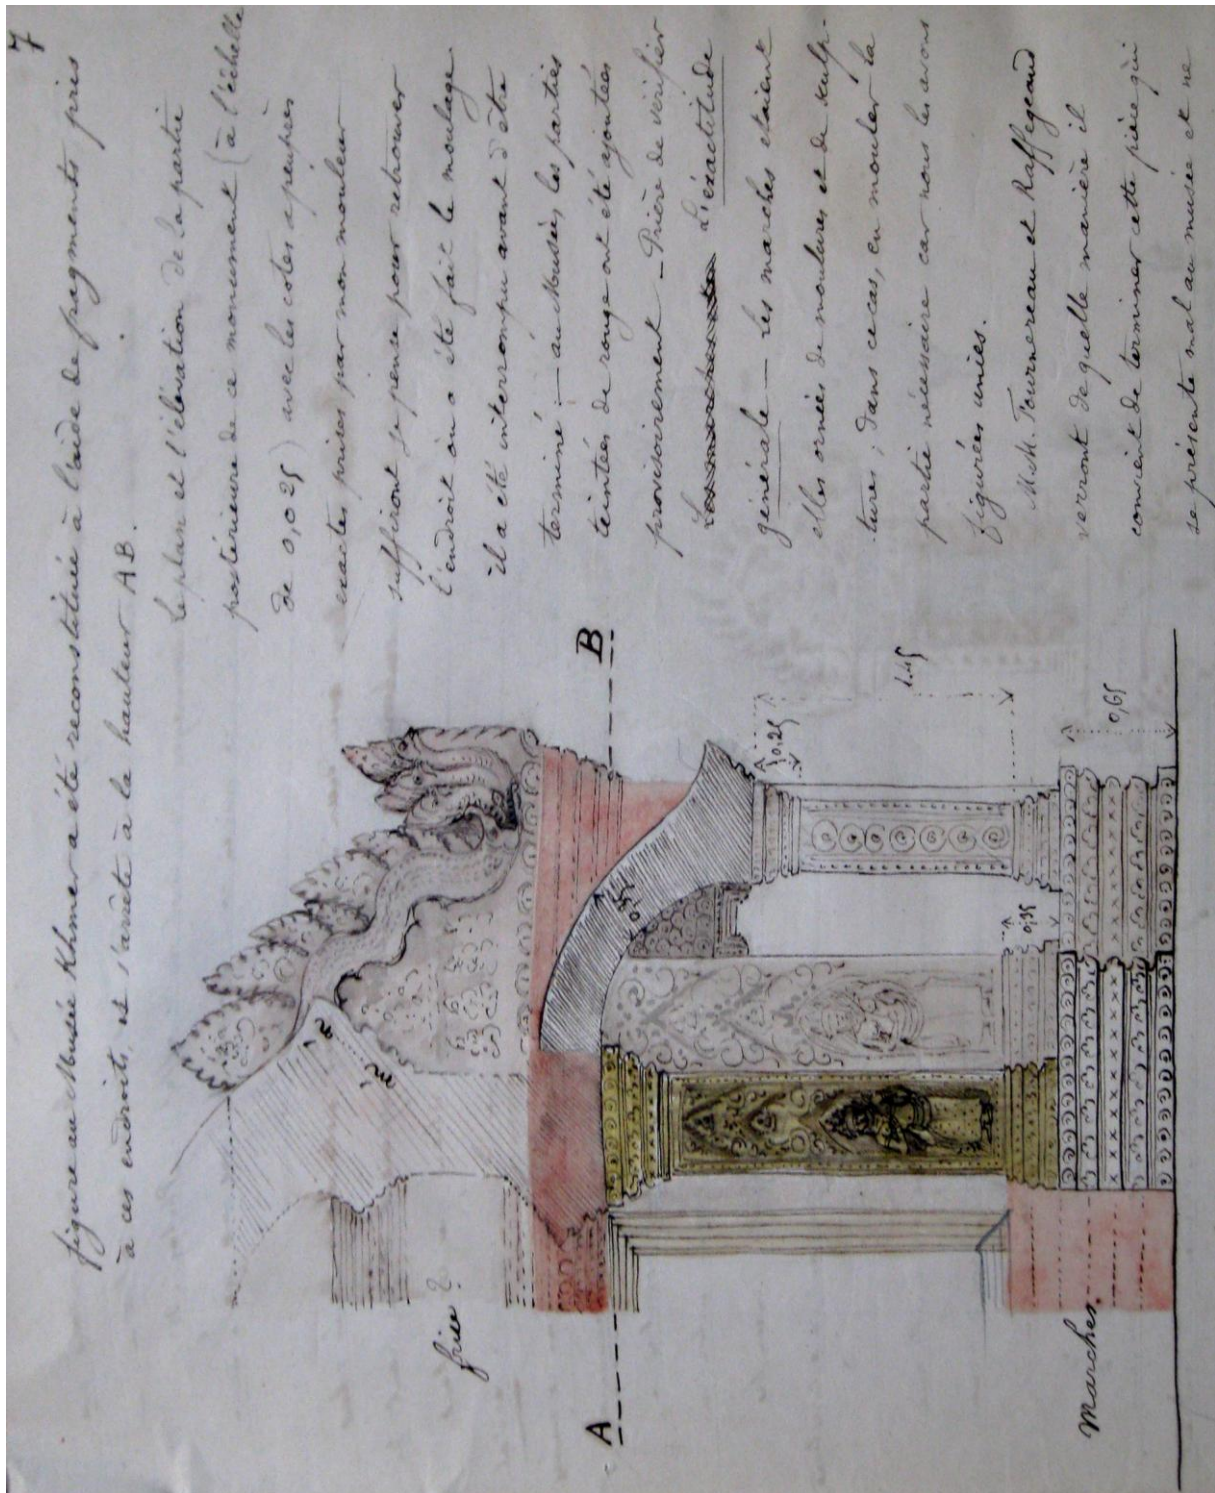 7
figure au Musée Khmer a été reconstituée à l'aide de fragments pris
à ces endroits, et s'arrête à la hauteur AB.
Le plan et l'élévation de la partie
postérieure de ce monument (à l'échelle
de 0,025) avec les cotes à peu près
exactes prises par mon mouleur
suffiront je pense pour retrouver
l'endroit où a été fait le moulage
il a été interrompu avant d'être
terminé. — au Musée, les parties
teintées de rouge ont été ajoutées
provisoirement — Prière de vérifier
L'exactitude
générale — les marches étaient
elles ornées de moulures et de sculp-
tures; dans ce cas, en mouler la
partie nécessaire car nous les avons
figurées unies.
M.M. Tournereau et Raffegeaud
verront de quelle manière il
convient de terminer cette pièce qui
se présente mal au musée et ne
A
B
frise?
m
n
0,35
0,25
1.45
0,35
0,65
Marches.